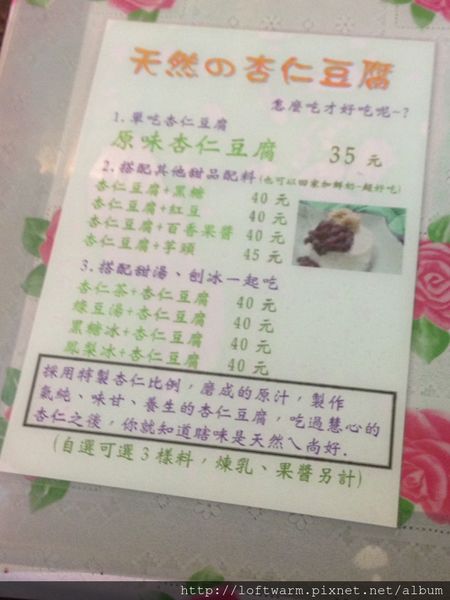 天然の杏仁豆腐
怎麼吃才好吃呢~?
1. 單吃杏仁豆腐
原味杏仁豆腐 35 元
2. 搭配其他甜品配料(也可以回家加鮮奶一起好吃)
杏仁豆腐+黑糖 40 元
杏仁豆腐+紅豆 40 元
杏仁豆腐+百香果醬 40 元
杏仁豆腐+芋頭 45 元
3. 搭配甜湯、刨冰一起吃
杏仁茶+杏仁豆腐 40 元
綠豆湯+杏仁豆腐 40 元
黑糖冰+杏仁豆腐 40 元
鳳梨冰+杏仁豆腐 40 元
採用特製杏仁比例，磨成的原汁，製作
氣純、味甘、養生的杏仁豆腐，吃過慧心的
杏仁之後，你就知道瞎味是天然ㄟ尚好.
(自選可選3樣料，煉乳、果醬另計)
http://loftwarm.pixnet.net/album